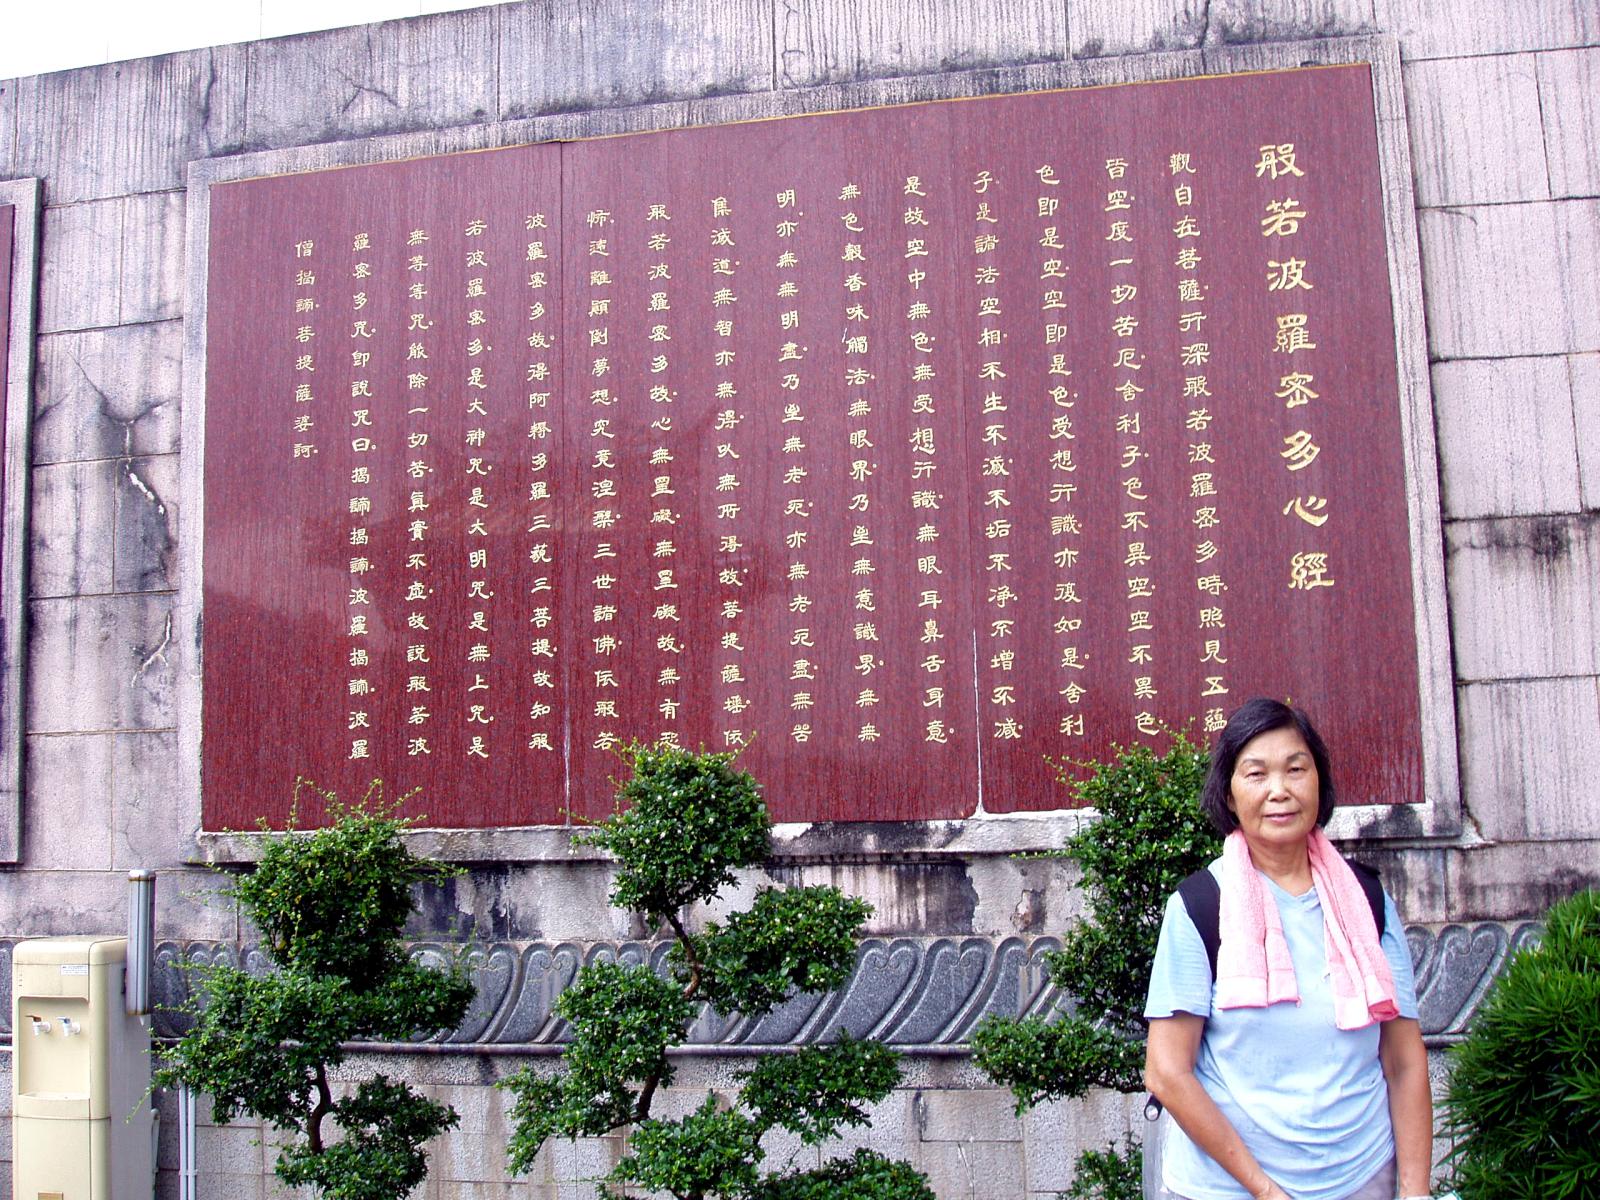 般若波羅密多心經
觀自在菩薩行深般若波羅密多時照見五蘊
皆空度一切苦厄舍利子色不異空空不異色
色即是空空即是色受想行識亦復如是舍利
子是諸法空相不生不滅不垢不淨不增不減
是故空中無色無受想行識無眼耳鼻舌身意
無色聲香味觸法無眼界乃至無意識界無無
明亦無無明盡乃至無老死亦無老死盡無苦
集滅道無智亦無得以無所得故菩提薩埵依
般若波羅密多故心無罣礙無罣礙故無有恐
怖遠離顛倒夢想究竟涅槃三世諸佛依般若
波羅密多故得阿耨多羅三藐三菩提故知般
若波羅密多是大神咒是大明咒是無上咒是
無等等咒能除一切苦真實不虛故說般若波
羅密多咒即說咒曰揭諦揭諦波羅揭諦波羅
僧揭諦菩提薩婆訶